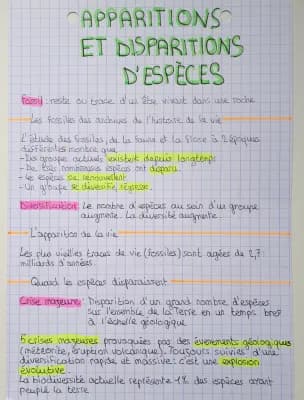 APPARITIONS
ET DISPARITIONS
D'ESPÈCES
Fossile : reste ou trace d'un être vivant dans une roche
Les fossiles des archives de l'histoire de la vie
L'étude des fossiles, de la faune et la flore à 2 époques
différentes montre que
- Des groupes actuels existent depuis longtemps
- De très nombreuses espèces ont disparu
- Les espèces se renouvellent
- Un groupe se diversifie, régresse.
Diversification : Le nombre d'espèces au sein d'un groupe
augmente. La diversité augmente.
L'apparition de la vie
Les plus vieilles traces de vie (fossiles) sont agées de 2,7
milliards d'années.
Quand les espèces disparaissent
Crise majeure : Disparition d'un grand nombre d'espèces
sur l'ensemble de la Terre en un temps bref
à l'échelle géologique
5 crises majeures provoquées par des évènements géologiques
(météorite, éruption volcanique). Toujours suivies d'une
diversification rapide et massive : c'est une explosion
évolutive.
La biodiversité actuelle représente 1% des espèces ayant
peuplé la terre